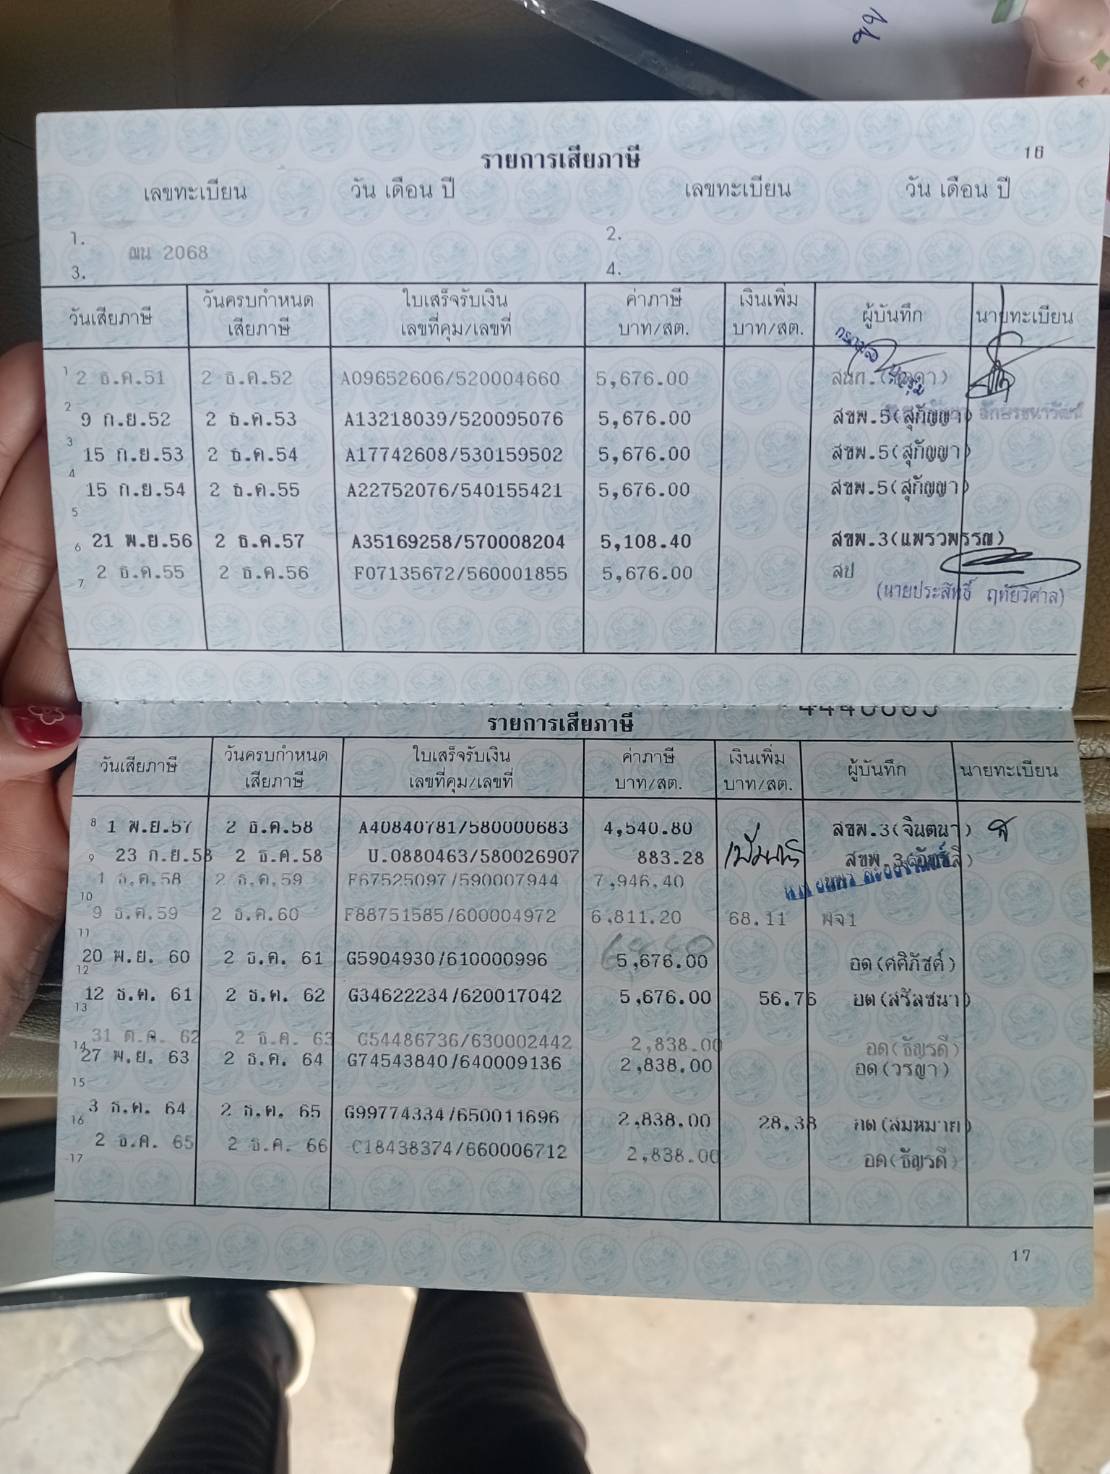 ขข
รายการเสียภาษี 16
เลขทะเบียน วัน เดือน ปี เลขทะเบียน วัน เดือน ปี
1. 2.
ฌน 2068
3. 4.
วันเสียภาษี วันครบกำหนดเสียภาษี ใบเสร็จรับเงิน เลขที่คุม/เลขที่ ค่าภาษี บาท/สต. เงินเพิ่ม บาท/สต. ผู้บันทึก นายทะเบียน
1 2 ธ.ค.51 2 ธ.ค.52 A09652606/520004660 5,676.00
2 9 ก.ย.52 2 ธ.ค.53 A13218039/520095076 5,676.00 สขพ.5(สุกัญญา)
3 15 ก.ย.53 2 ธ.ค.54 A17742608/530159502 5,676.00 สขพ.5(สุกัญญา)
4 15 ก.ย.54 2 ธ.ค.55 A22752076/540155421 5,676.00 สขพ.5(สุกัญญา)
5
6 21 พ.ย.56 2 ธ.ค.57 A35169258/570008204 5,108.40 สขพ.3(แพรวพรรณ)
7 2 ธ.ค.55 2 ธ.ค.56 F07135672/560001855 5,676.00 สป
(นายประสิทธิ์ ฤทัยวิศาล)
รายการเสียภาษี
วันเสียภาษี วันครบกำหนดเสียภาษี ใบเสร็จรับเงิน เลขที่คุม/เลขที่ ค่าภาษี บาท/สต. เงินเพิ่ม บาท/สต. ผู้บันทึก นายทะเบียน
8 1 พ.ย.57 2 ธ.ค.58 A40840781/580000683 4,540.80 สขพ.3(จินตนา)
9 23 ก.ย.58 2 ธ.ค.58 U.0880463/580026907 883.28 เพิ่มภาษี สขพ.3
1 ธ.ค.58 2 ธ.ค.59 F67525097/590007944 7,946.40
10
9 ธ.ค.59 2 ธ.ค.60 F88751585/600004972 6,811.20 68.11 พจ1
11
20 พ.ย. 60 2 ธ.ค. 61 G5904930/610000996 5,676.00 อด(ศศิภัชค์)
12
12 ธ.ค. 61 2 ธ.ค. 62 G34622234/620017042 5,676.00 56.76 อด(สรัลชนา)
13
31 ต.ค. 62 2 ธ.ค. 63 C54486736/630002442 2,838.00 อด(ธัญรดี)
14 27 พ.ย. 63 2 ธ.ค. 64 G74543840/640009136 2,838.00 อด(วรญา)
15
3 ธ.ค. 64 2 ธ.ค. 65 G99774334/650011696 2,838.00 28.38 อด(สมหมาย)
16
2 ธ.ค. 65 2 ธ.ค. 66 C18438374/660006712 2,838.00 อด(ธัญรดี)
17
17